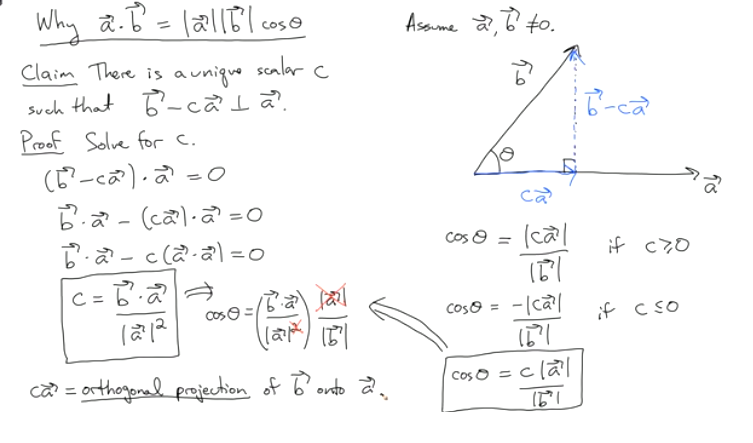 Why a⃗ · b⃗ = |a⃗||b⃗| cosθ
Claim There is a unique scalar c
such that b⃗ - ca⃗ ⊥ a⃗.
Proof Solve for c.
(b⃗ - ca⃗) · a⃗ = 0
b⃗ · a⃗ - (ca⃗) · a⃗ = 0
b⃗ · a⃗ - c(a⃗ · a⃗) = 0
c = b⃗ · a⃗ / |a⃗|² ⇒ cosθ = (b⃗ · a⃗ / |a⃗|²) |a⃗| / |b⃗|
ca⃗ = orthogonal projection of b⃗ onto a⃗.
Assume a⃗, b⃗ ≠ 0.
b⃗
b⃗ - ca⃗
θ
a⃗
ca⃗
cosθ = |ca⃗| / |b⃗| if c ≥ 0
cosθ = -|ca⃗| / |b⃗| if c ≤ 0
cosθ = c|a⃗| / |b⃗|